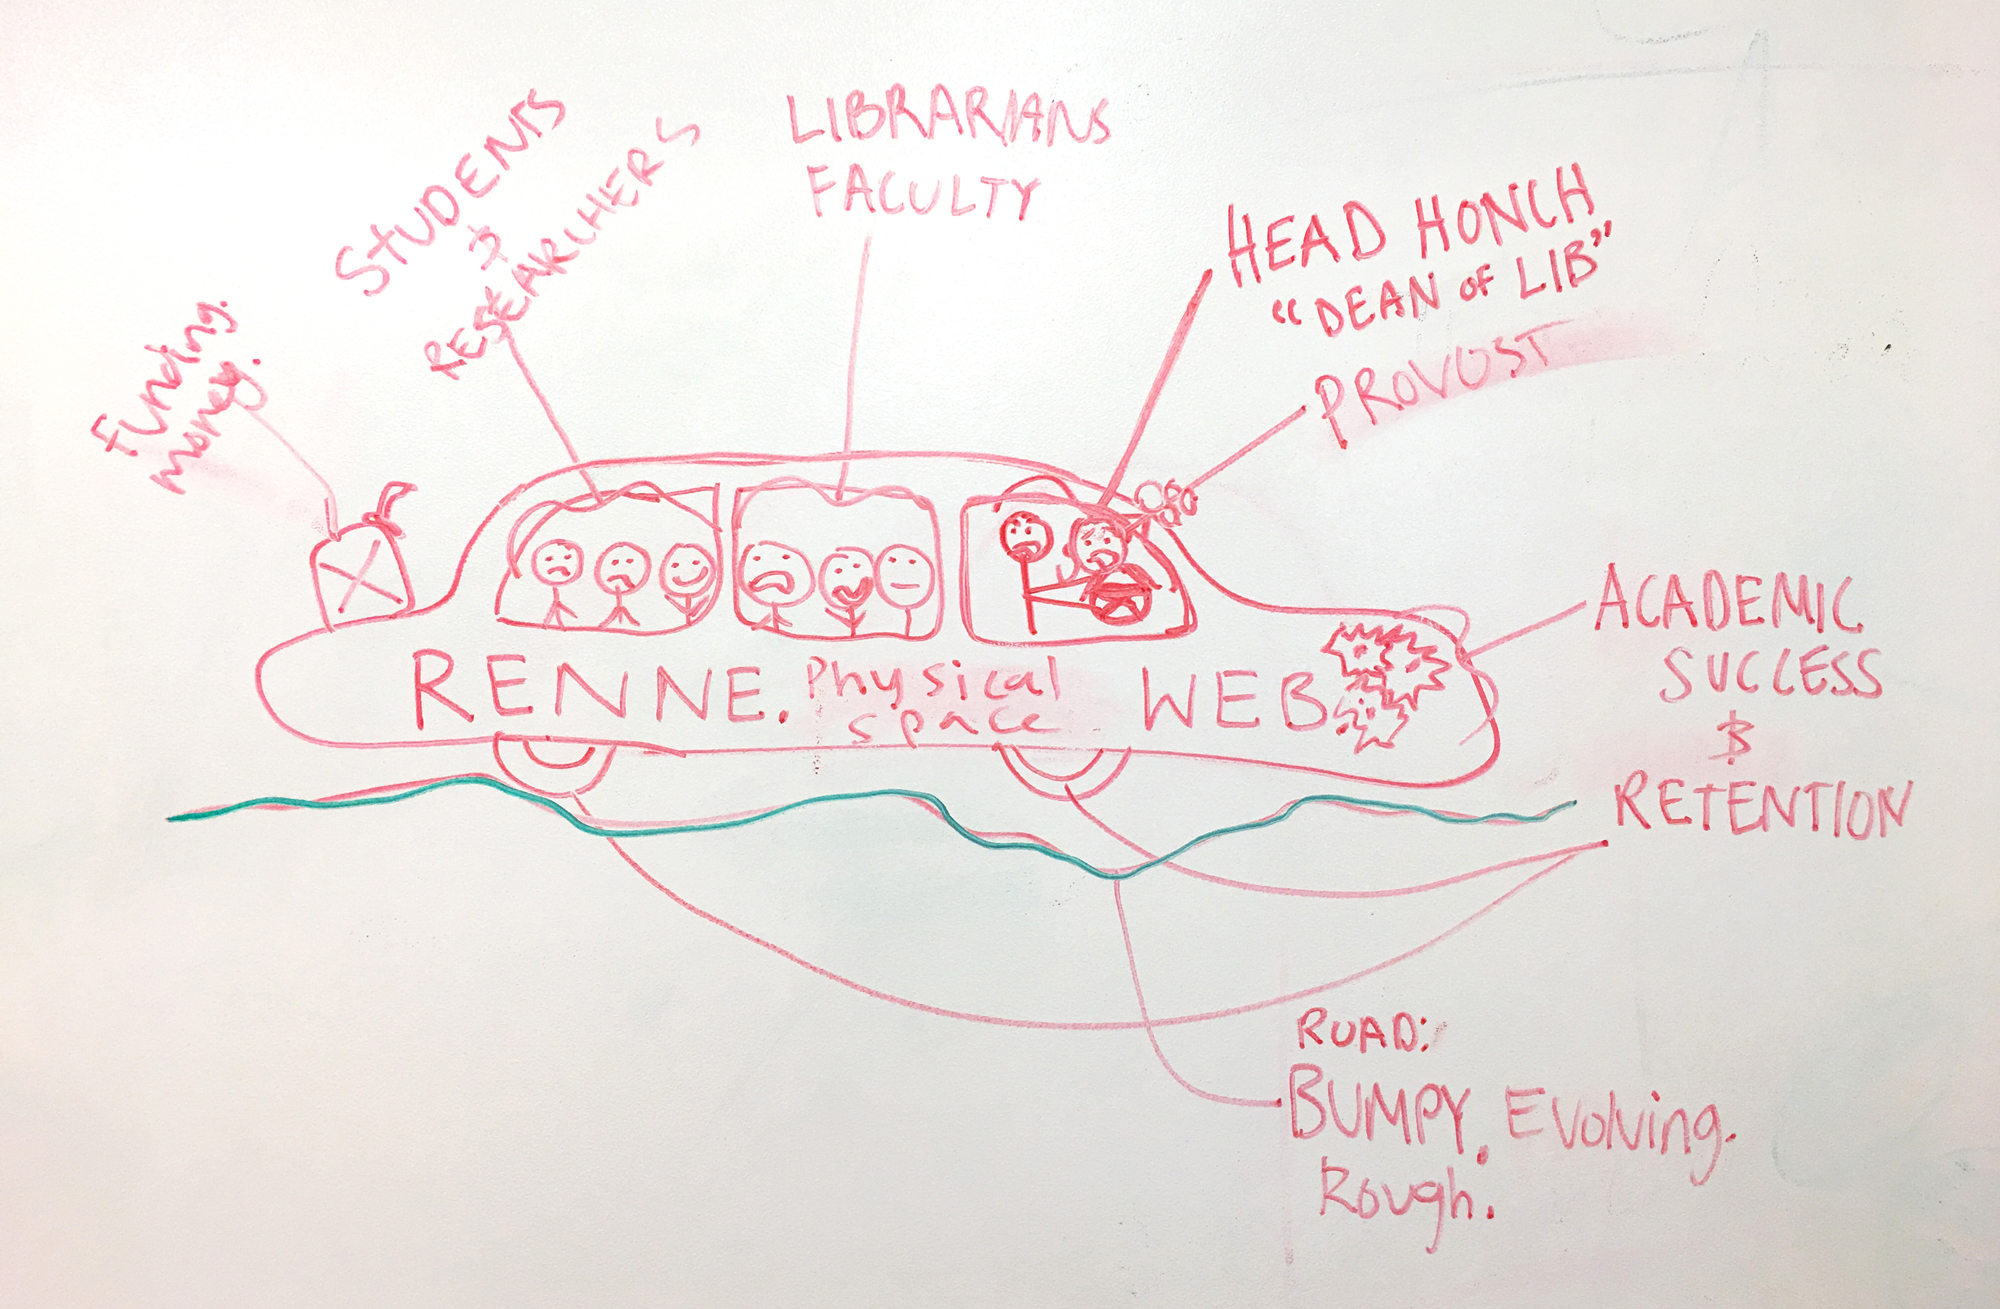 Funding.
money.
STUDENTS
&
RESEARCHERS
LIBRARIANS
FACULTY
HEAD HONCH.
"DEAN OF LIB"
PROVOST
RENNE. Physical
space
WEB
ACADEMIC
SUCCESS
&
RETENTION
ROAD:
BUMPY. Evolving.
Rough.